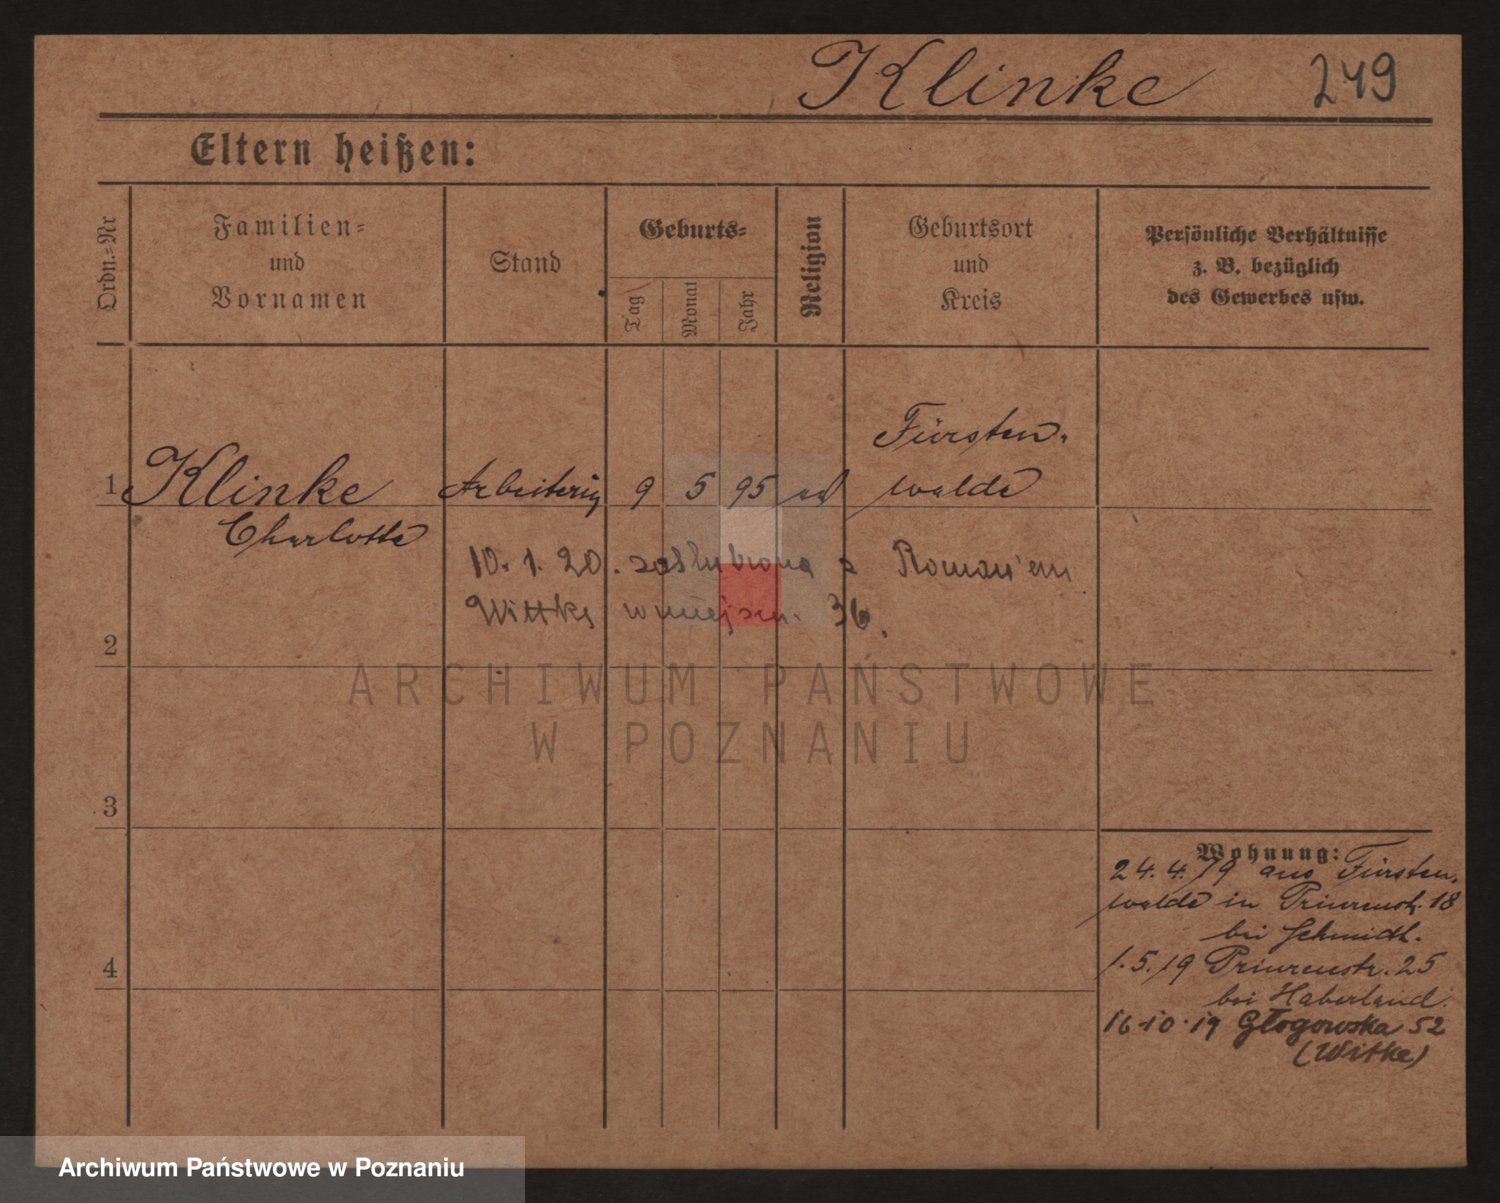 Klinke 249
Eltern heißen:
Ordn.=Nr
Familien=
und
Vornamen
Stand
Geburts=
Tag
Monat
Jahr
Religion
Geburtsort
und
Kreis
Persönliche Verhältnisse
z. B. bezüglich
des Gewerbes usw.
Fürsten-
1 Klinke Arbeiterin 9 5 95 walde
Charlotte
10. 1. 20. zaślubiona z Roman'em
Wittke w miejscu. 36.
2
ARCHIWUM PAŃSTWOWE
W POZNANIU
3
4
Wohnung:
24.4.19 aus Fürsten-
walde in Prinzenstr. 18
bei Schmidt.
1.5.19 Prinzenstr. 25
bei Haberland.
16.10.19 Głogowska 52
(Witke)
Archiwum Państwowe w Poznaniu